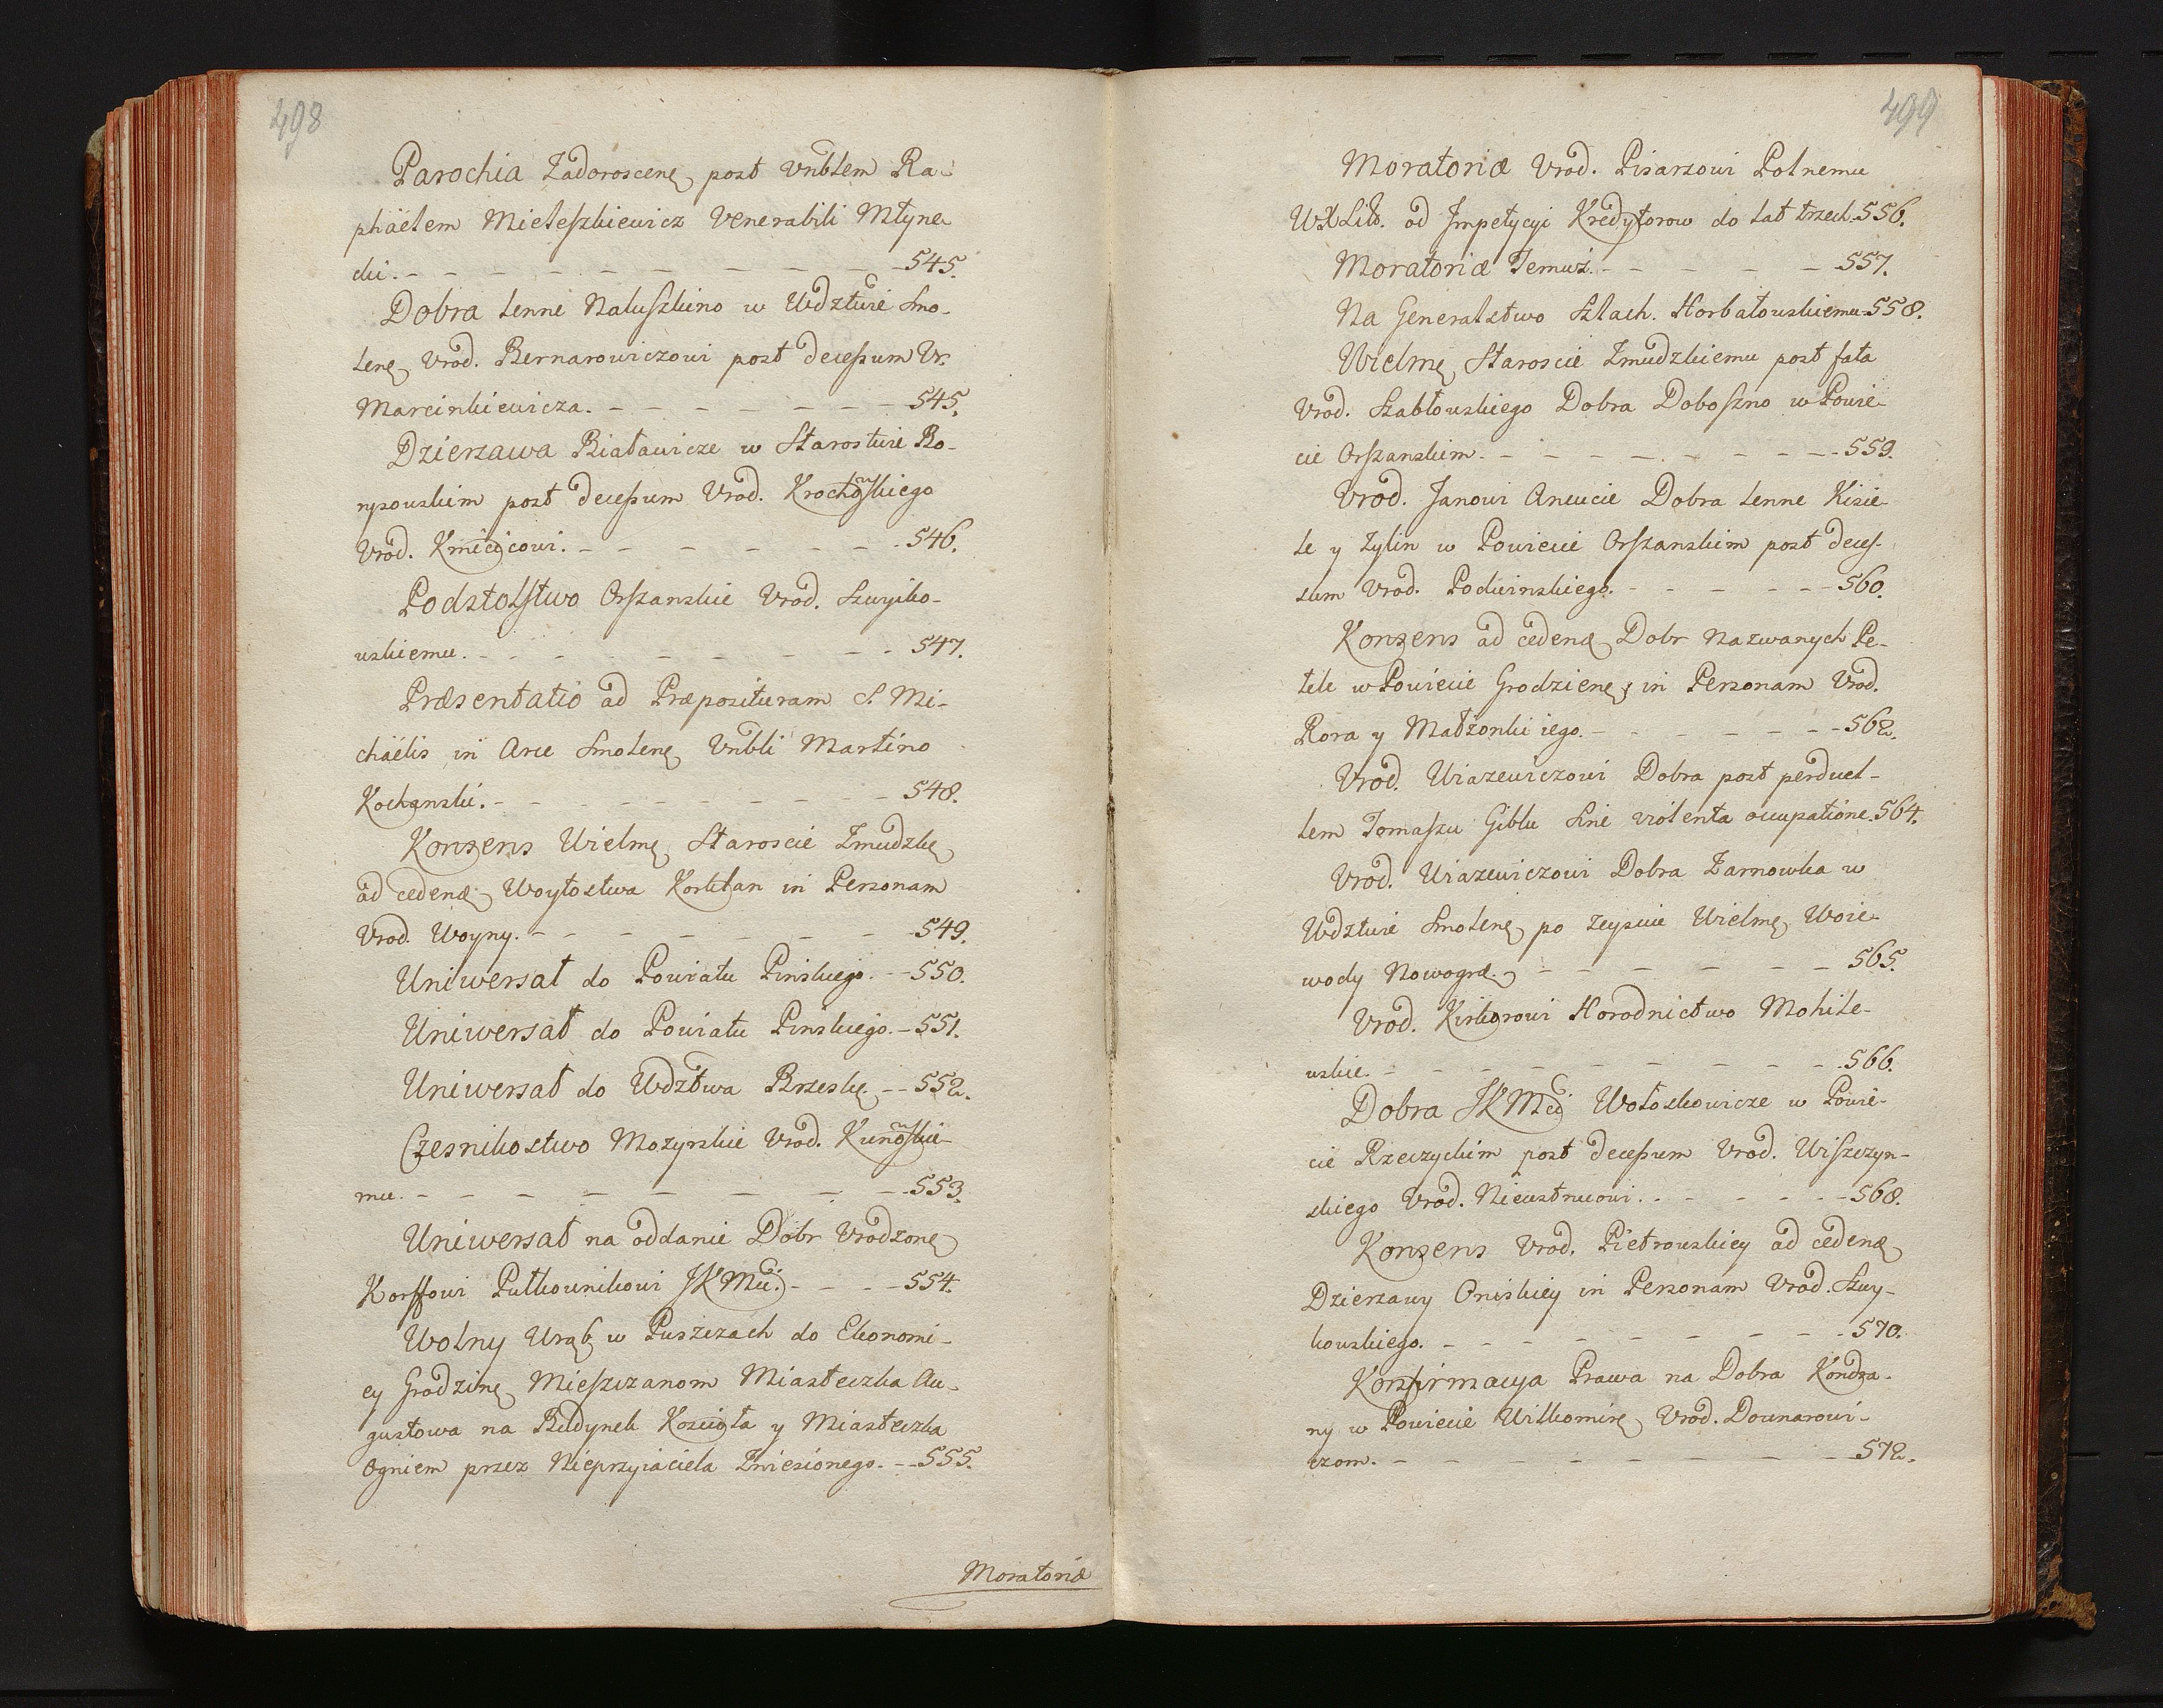 498
Parochia Zadoroscenę post Vnblem Ra-
phäelem Mieleszkiewicz Venerabili Młyne-
cki. - - - - - - - - - 545.
Dobra Lenne Naluszkino w Wdztwie Smo-
lenę Vrod. Bernarowiczowi post decessum Vr.
Marcinkiewicza. - - - - - - - 545.
Dzierzawa Białawicze w Starostwie Bo-
rysowskim post decessum Vrod. Krochowskiego
Vrod. Kmicicowi. - - - - - - - 546.
Podstolstwo Orszanskie Vrod. Szwyiko-
wskiemu. - - - - - - - - - 547.
Præsentatio ad Præposituram S. Mi-
chäelis in Arce Smolenę Vnbli Martino
Kochanski. - - - - - - - - - 548.
Konsens Wielmę Staroscie Zmudzkę
ad cedendę Woytostwa Korklan in Personam
Vrod. Woyny. - - - - - - - 549.
Uniwersał do Powiatu Pinskiego. - - 550.
Uniwersał do Powiatu Pinskiego. - 551.
Uniwersał do Wdztwa Brzeskę - - 552.
Czesnikostwo Mozyrskie Vrod. Kunowskie-
mu. - - - - - - - - - 553.
Uniwersał na oddanie Dobr Vrodzonę
Korffowi Pułkownikowi JKMci. - - - - 554.
Wolny Urąb w Puszczach do Ekonomi-
ey Grodzinę Mieszczanom Miasteczka Au-
gustowa na Budynek Koscioła y Miasteczka
Ogniem przez Nieprzyiaciela Zniesionego. - - 555.
Moratoriæ
499
Moratoriæ Vrod. Pisarzowi Polnemu
WXLitt. od Jmpetycyi Kredytorow do lat trzech. 556.
Moratoriæ Temuż. - - - - - 557.
Na Generalstwo Szlach. Horbatowskiemu. 558.
Wielmę Staroscie Zmudzkiemu post fata
Vrod. Szabłowskiego Dobra Doboszno w Powie-
cie Orszanskim. - - - - - - - - 559.
Vrod. Janowi Ancucie Dobra Lenne Kisie-
le y Zylin w Powiecie Orszanskim post deces-
sum Vrod. Podwinskiego. - - - - - 560.
Konsens ad cedenę Dobr Nazwanych Pe-
tele w Powiecie Grodzienę in Personam Vrod.
Rora y Małżonki iego. - - - - - - 562.
Vrod. Wiazewiczowi Dobra post perduel-
lem Tomaszu Giblu Sine violenta occupatione. 564.
Vrod. Wiazewiczowi Dobra Zarnowka w
Wdztwie Smolenę po zeysciu Wielmę Woie-
wody Nowogrę. - - - - - - 565.
Vrod. Kirkorowi Horodnictwo Mohile-
wskie. - - - - - - - - - 566.
Dobra JKMci Wołoskowicze w Powie-
cie Rzeczyckim post decessum Vrod. Wiszczyn-
skiego Vrod. Nieustruowi. - - - - - 568.
Konsens Vrod. Pietrowskiey ad cedenę
Dzierzawy Oniskiey in Personam Vrod. Szwy-
kowskiego. - - - - - - - - 570.
Konfirmacya Prawa na Dobra Kondra-
ny w Powiecie Wilkomirę Vrod. Downarowi-
czom. - - - - - - - - - 572.